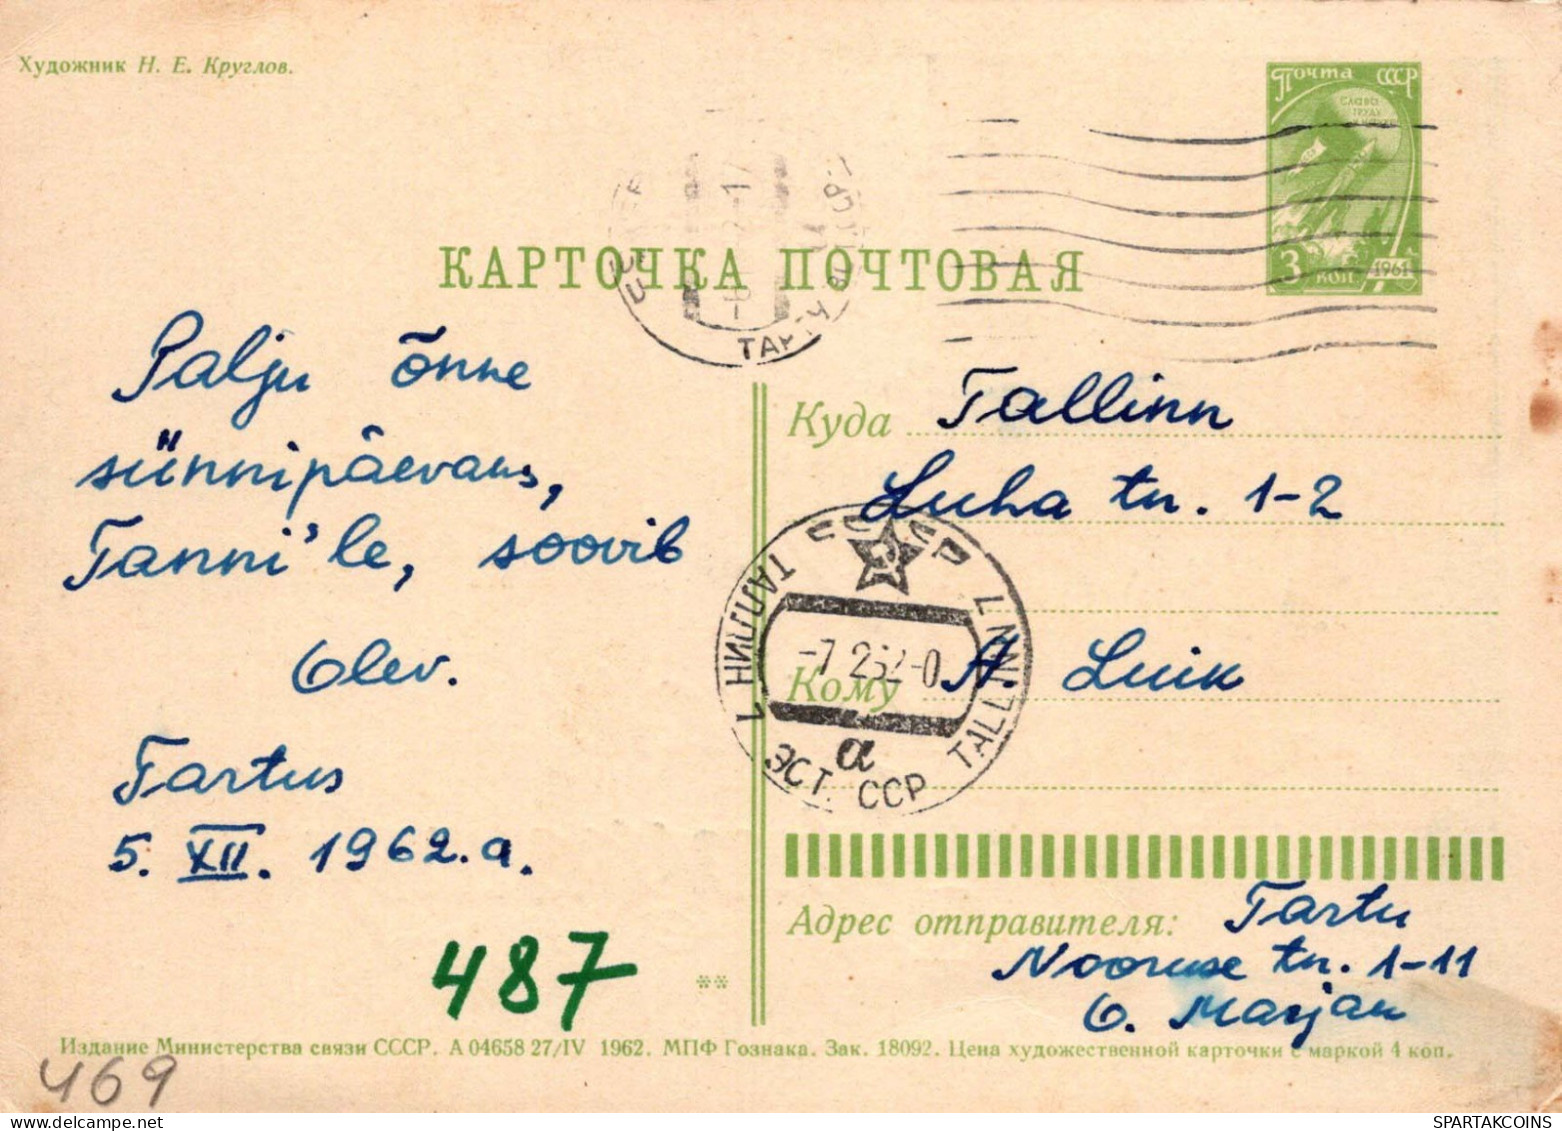 Художник Н. Е. Круглов.
Почта СССР
Слава
труду
3 коп. 1961
КАРТОЧКА ПОЧТОВАЯ
ТАРТУ
Palju õnne
sünnipäevaks,
Tanni'le, soovib
Olev.
Tartus
5. XII. 1962.a.
487
**
Куда Tallinn
Luha tn. 1-2
Кому A. Luik
1 ТАЛЛИН
ЭСТ. ССР
TALLINN
a
Адрес отправителя: Tartu
Nooruse tn. 1-11
O. Marjak
Издание Министерства связи СССР. А 04658 27/IV 1962. МПФ Гознака. Зак. 18092. Цена художественной карточки с маркой 4 коп.
469
SPARTAKCOINS